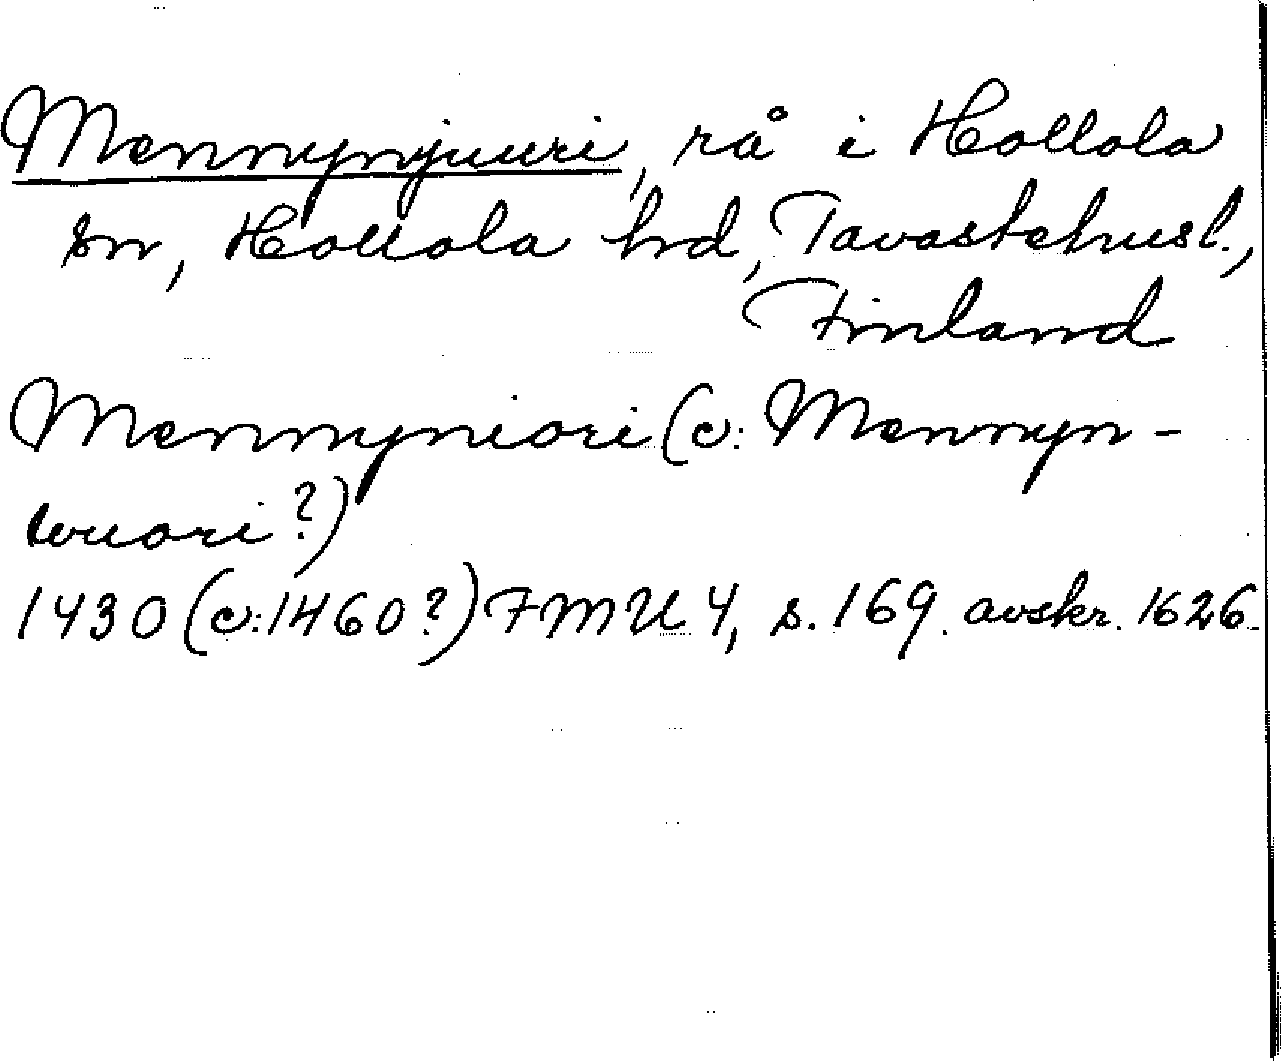 Mennynjuuri, rå i Hollola
sn, Hollola hd, Tavastehusl.,
Finland
Mennyniori (ɔ: Mennyn-
wuori?)
1430 (ɔ: 1460?) FMU 4, s. 169. avskr. 1626.